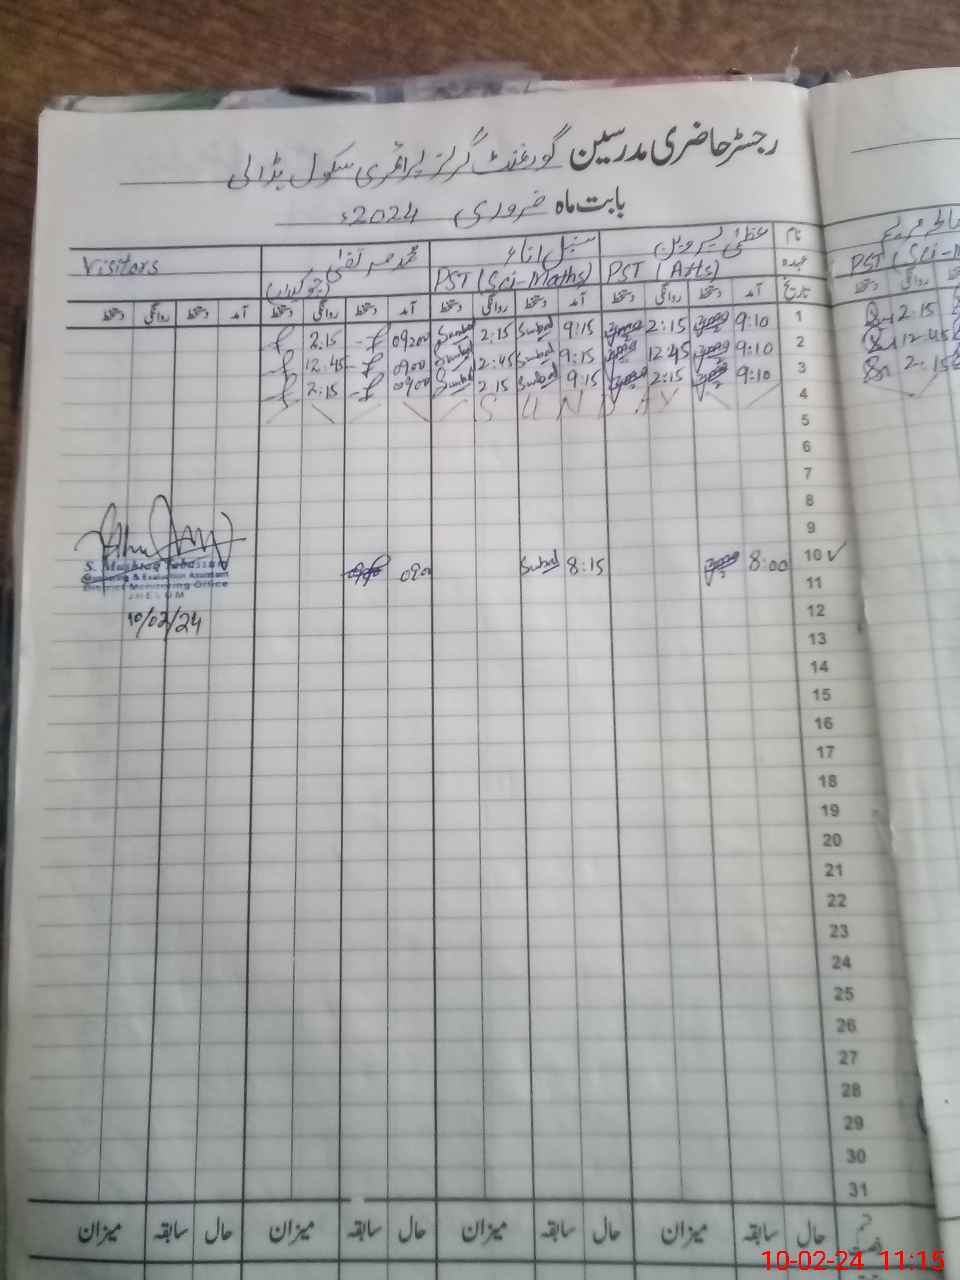 رجسٹر حاضری مدرسین گورنمنٹ گرلز پرائمری سکول بڈالی
بابت ماہ فروری 2024ء
نام عظمیٰ پروین سنبل محمد Visitors
عہدہ PST (Arts) PST (Sci-Maths) (چوکیدار) PST (Sci-M
تاریخ آمد دستخط روانگی دستخط آمد دستخط روانگی دستخط آمد دستخط روانگی دستخط آمد دستخط روانگی دستخط
1 9:10 2:15 9:15 Sumbal 2:15 Sumbal 0900 2:15 2:15
2 9:10 12:45 9:15 Sumbal 2:45 Sumbal 0900 12:45 12:45
3 9:10 2:15 9:15 Sumbal 2:15 Sumbal 0900 2:15 2:15
4 SUNDAY
5
6
7
8
9
10 ✓ 8:00 8:15 Sumbal 0900
11
S. Mushtaq Tabassum
Monitoring & Evaluation Assistant
District Monitoring Office
JHELUM
10/02/24
12
13
14
15
16
17
18
19
20
21
22
23
24
25
26
27
28
29
30
31
حال سابقہ میزان حال سابقہ میزان حال سابقہ میزان حال سابقہ میزان
10-02-24 11:15